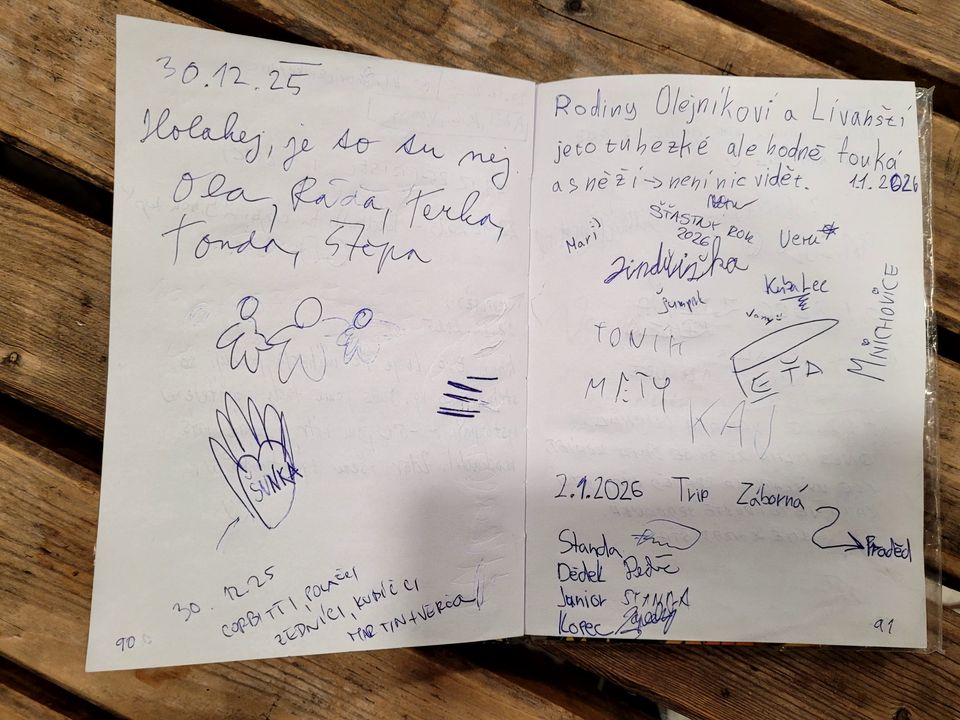 30.12.25
Holahej, je to su nej
Ola, Ráďa, Terka,
Tonda, Štěpa
ŠUNKA
30.12.25
CORBITTI, POLÁČCI
ZEDNÍCI, KUBÍČCI
MARTIN+VERČA
90
Rodiny Olejníkoví a Livanští
jeto tu hezké ale hodně fouká
a sněží → není nic vidět. 1.1.2026
ŠŤASTNÝ ROK
2026
Mari :)
Veru
Jindřiška
TONÍK
MÉTY
EŤD
KAJ
MNICHOVICE
2.1.2026 Trip Záborná
Praděd
Standa
Dědek
Junior
Kopec
91